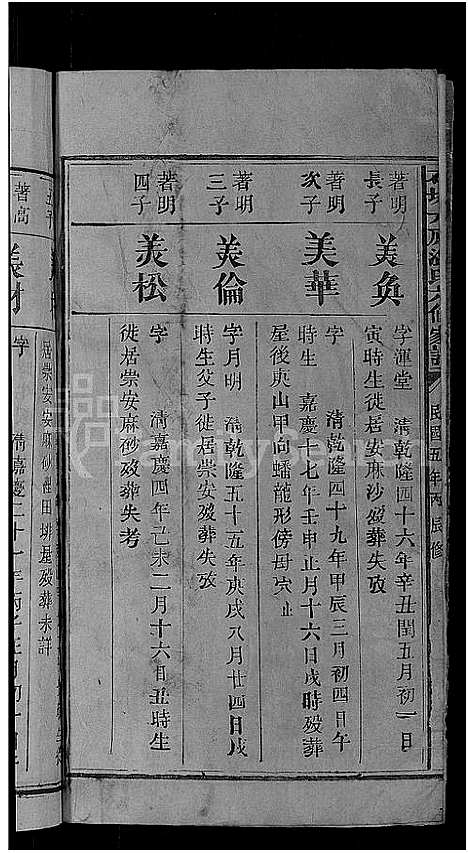 民國五年丙辰修
著明
長子
美奐
字滙堂 清乾隆四十六年辛丑閏五月初一日
寅時生徙居崇安麻沙歿葬失攷
著明
次子
美華
字 清乾隆四十九年甲辰三月初四日午
時生 嘉慶十七年壬申正月十六日戌時歿葬
屋後庚山甲向蟠龍形傍母穴止
著明
三子
美倫
字月明 清乾隆五十五年庚戌八月廿四日戌
時生父子徙居崇安歿葬失攷
著明
四子
美松
字 清嘉慶四年己未二月十六日丑時生
徙居崇安麻砂歿葬失考
居崇安安麻砂裡田排屋歿葬未詳
著高
美材
字 清嘉慶二十一年丙子